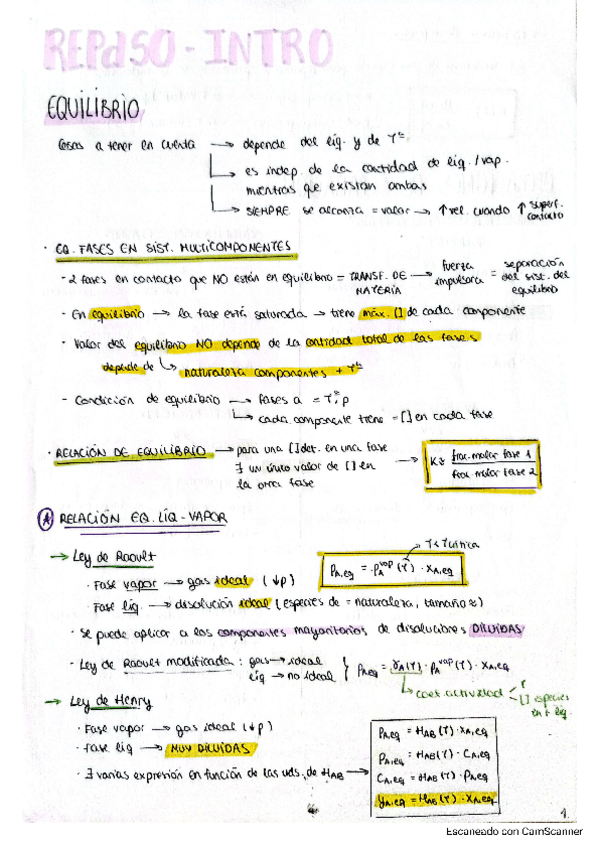 REPASO - INTRO
EQUILIBRIO
Cosas a tener en cuenta → depende del líq. y de Tª
→ es indep. de la cantidad de líq./vap.
mientras que existan ambas
→ SIEMPRE se alcanza = valor → ↑ vel. cuando ↑ superf. contacto
· EQ. FASES EN SIST. MULTICOMPONENTES
- 2 fases en contacto que NO están en equilibrio = TRANSF. DE MATERIA → fuerza impulsora = separación del sist. del equilibrio
- En equilibrio → la fase está saturada → tiene máx. [] de cada componente
- Valor del equilibrio NO depende de la cantidad total de las fases
depende de → naturaleza componentes + Tª
- Condición de equilibrio → fases a = Tª, p
→ cada componente tiene = [] en cada fase
· RELACIÓN DE EQUILIBRIO → para una [] det. en una fase
∃ un único valor de [] en
la otra fase
→ K = frac. molar fase 1 / frac. molar fase 2
A RELACIÓN EQ. LÍQ-VAPOR
→ Ley de Raoult
T < Tcrítica
PA,eq = PA^vap (T) · XA,eq
· Fase vapor → gas ideal (↓p)
· Fase líq. → disolución ideal (especies de = naturaleza, tamaño ≈)
· Se puede aplicar a los componentes mayoritarios de disoluciones DILUIDAS
- Ley de Raoult modificada: gas → ideal
líq → no ideal
} PA,eq = γA(T) · PA^vap (T) · XA,eq
→ coef. actividad → T
→ [] especies en f. líq.
→ Ley de Henry
· Fase vapor → gas ideal (↓p)
· Fase líq → MUY DILUIDAS
· ∃ varias expresión en función de las uds. de HAB →
PA,eq = HAB (T) · XA,eq
PA,eq = HAB (T) · CA,eq
CA,eq = HAB (T) · PA,eq
yA,eq = HAB (T) · XA,eq
1.
Escaneado con CamScanner